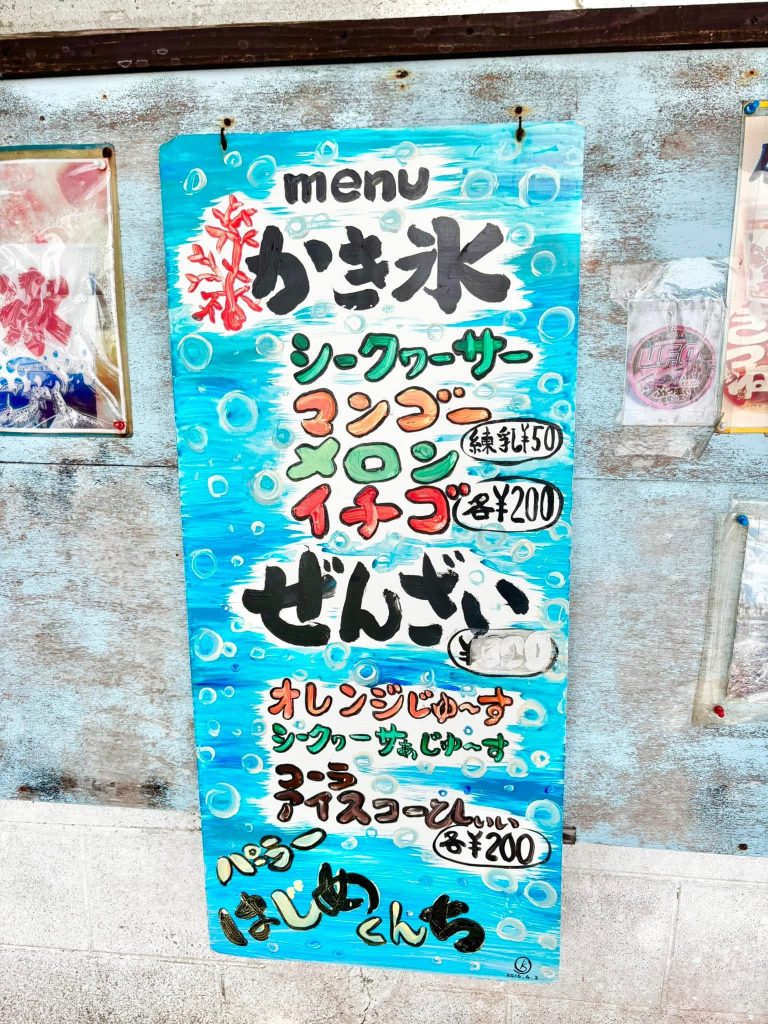 menu
かき氷
シークヮーサー
マンゴー
練乳¥50
メロン
イチゴ
各¥200
ぜんざい
オレンジじゅ〜す
シークヮーサぁじゅ〜す
コーラ
アイスコーとしぃぃ
各¥200
パーラー
はじめくんち
UFO